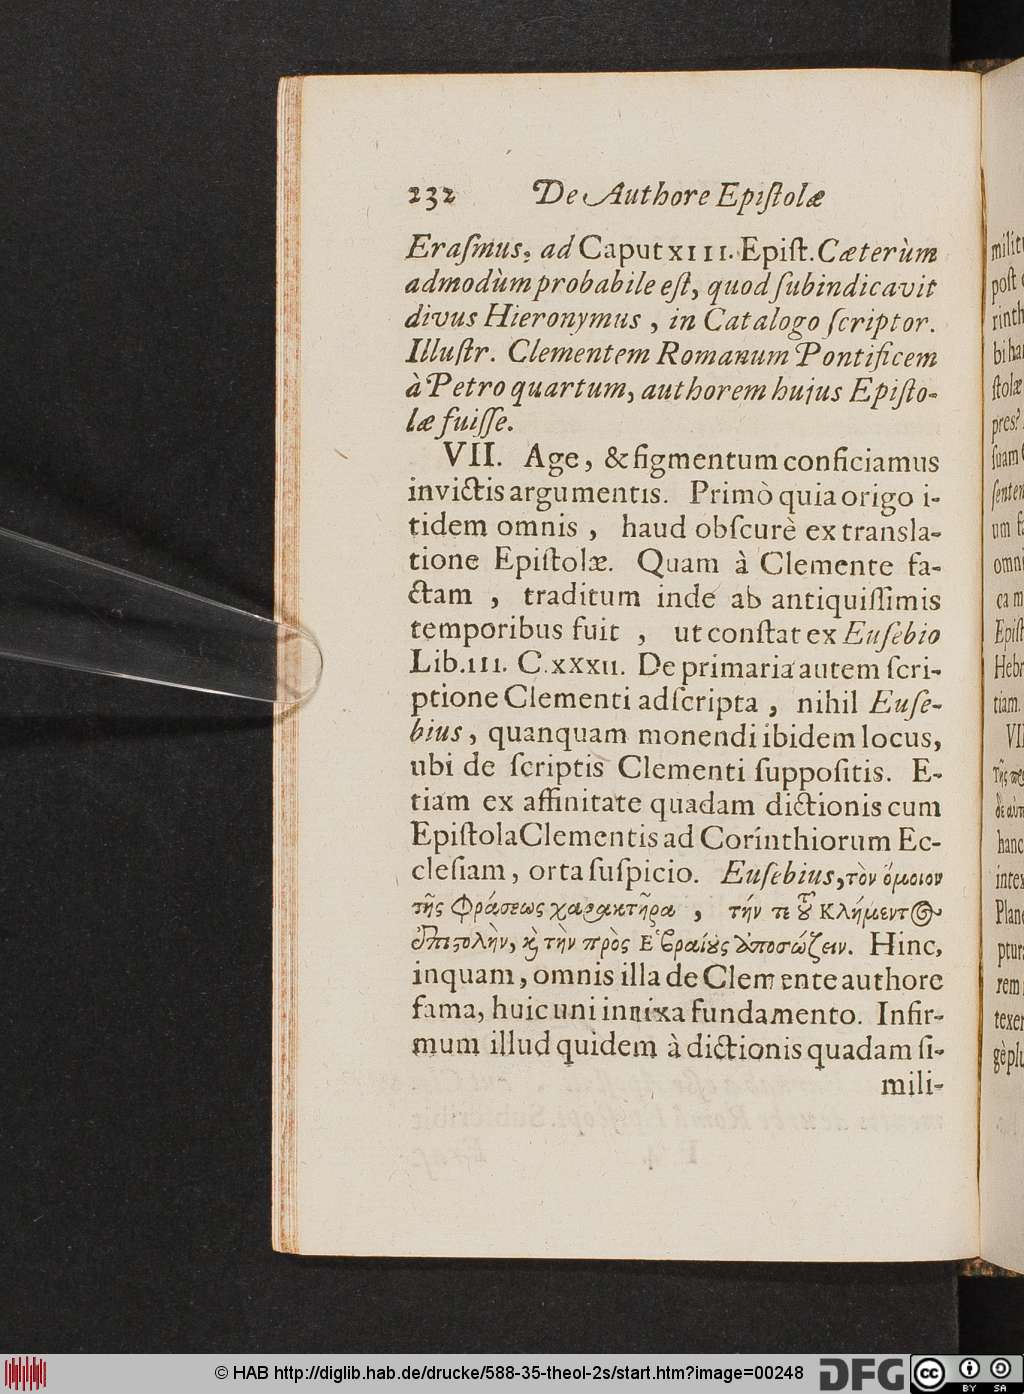 232 De Authore Epiſtolæ
Eraſmus, ad Caput XIII. Epiſt. Cæterùm
admodùm probabile eſt, quod ſubindicavit
divus Hieronymus , in Catalogo ſcriptor.
Illuſtr. Clementem Romanum Pontificem
à Petro quartum, authorem hujus Epiſto-
læ fuiſſe.
VII. Age, & figmentum conficiamus
invictis argumentis. Primò quia origo i-
tidem omnis , haud obſcurè ex transla-
tione Epiſtolæ. Quam à Clemente fa-
ctam , traditum inde ab antiquiſſimis
temporibus fuit , ut conſtat ex Euſebio
Lib. III. C. XXXII. De primaria autem ſcri-
ptione Clementi adſcripta , nihil Euſe-
bius, quanquam monendi ibidem locus,
ubi de ſcriptis Clementi ſuppoſitis. E-
tiam ex affinitate quadam dictionis cum
Epiſtola Clementis ad Corínthiorum Ec-
cleſiam, orta ſuſpicio. Euſebius, τὸν ὅμοιον
τῆς Φράσεως χαρακτῆρα , τήν τε τοῦ Κλήμεντος
ἐπιστολὴν, καὶ τὴν πρὸς Ἑβραίους ἀποσώζειν. Hinc,
inquam, omnis illa de Clemente authore
fama, huic uni innixa fundamento. Infir-
mum illud quidem à dictionis quadam ſi-
mili-
© HAB http://diglib.hab.de/drucke/588-35-theol-2s/start.htm?image=00248
DFG
cc BY SA